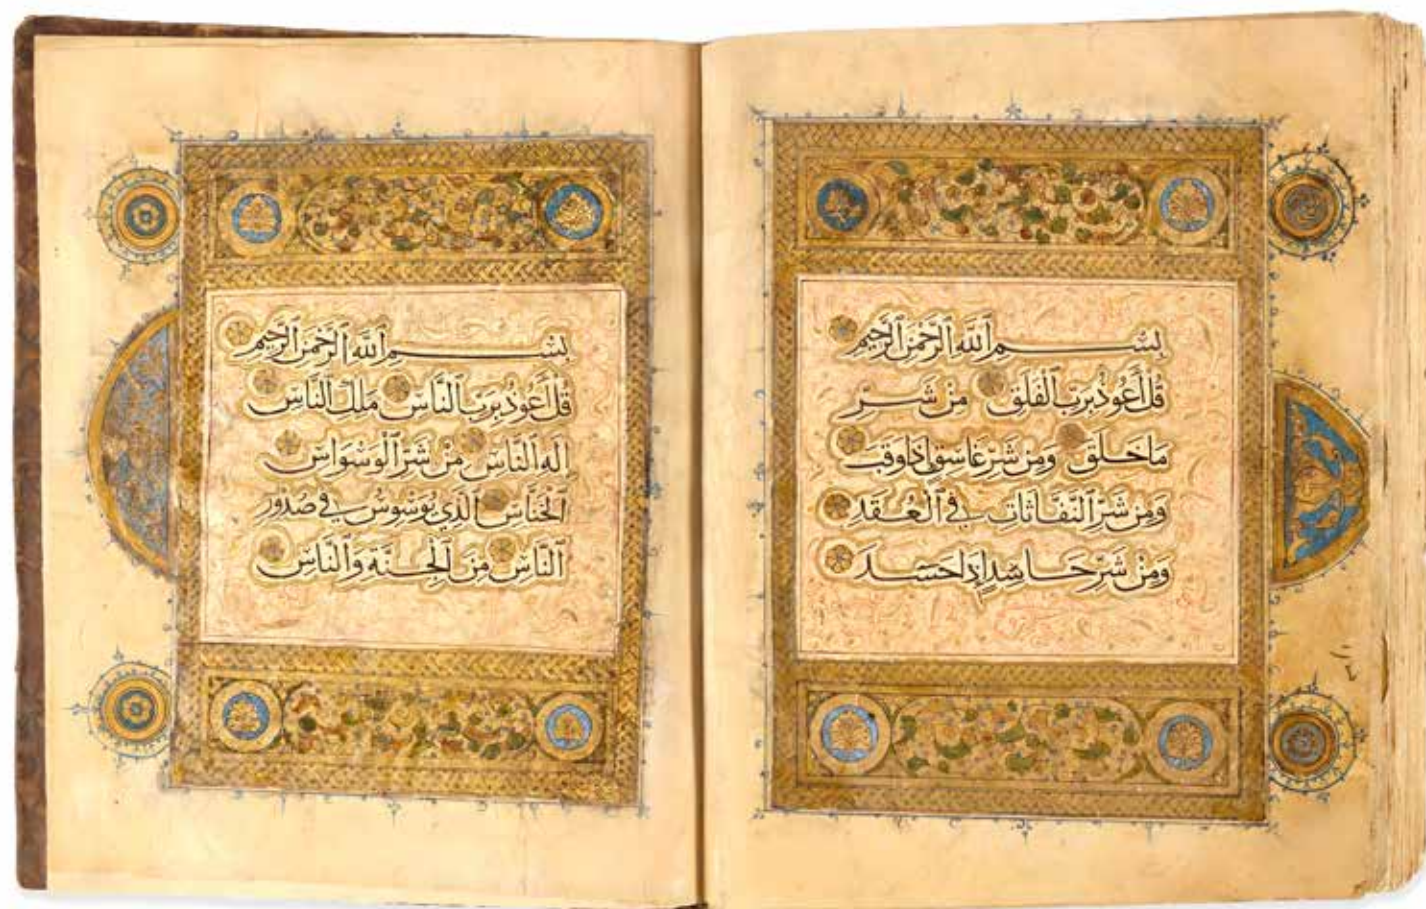 بِسْمِ اللَّهِ الرَّحْمَنِ الرَّحِيمِ
قُلْ أَعُوذُ بِرَبِّ الْفَلَقِ مِنْ شَرِّ
مَا خَلَقَ وَمِنْ شَرِّ غَاسِقٍ إِذَا وَقَبَ
وَمِنْ شَرِّ النَّفَّاثَاتِ فِي الْعُقَدِ
وَمِنْ شَرِّ حَاسِدٍ إِذَا حَسَدَ
بِسْمِ اللَّهِ الرَّحْمَنِ الرَّحِيمِ
قُلْ أَعُوذُ بِرَبِّ النَّاسِ مَلِكِ النَّاسِ
إِلَهِ النَّاسِ مِنْ شَرِّ الْوَسْوَاسِ
الْخَنَّاسِ الَّذِي يُوَسْوِسُ فِي صُدُورِ
النَّاسِ مِنَ الْجِنَّةِ وَالنَّاسِ